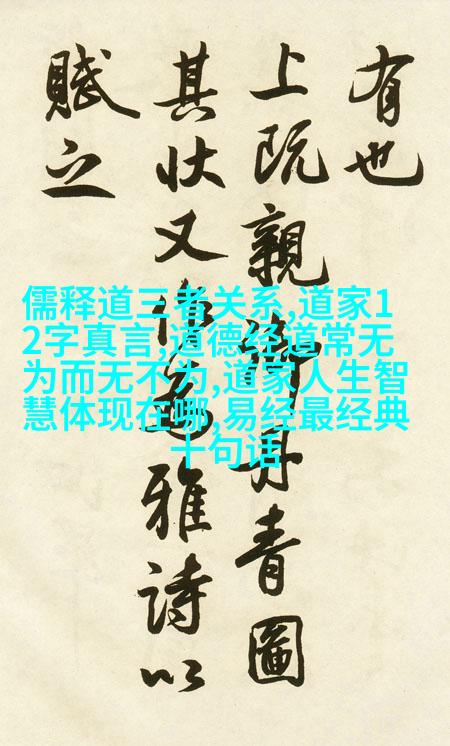 有也
上既親御丹青圖
其状又作為雅詩以
賦之
儒释道三者关系,道家1
2字真言,道德经道常无
为而无不为,道家人生智
慧体现在哪,易经最经典
十句话